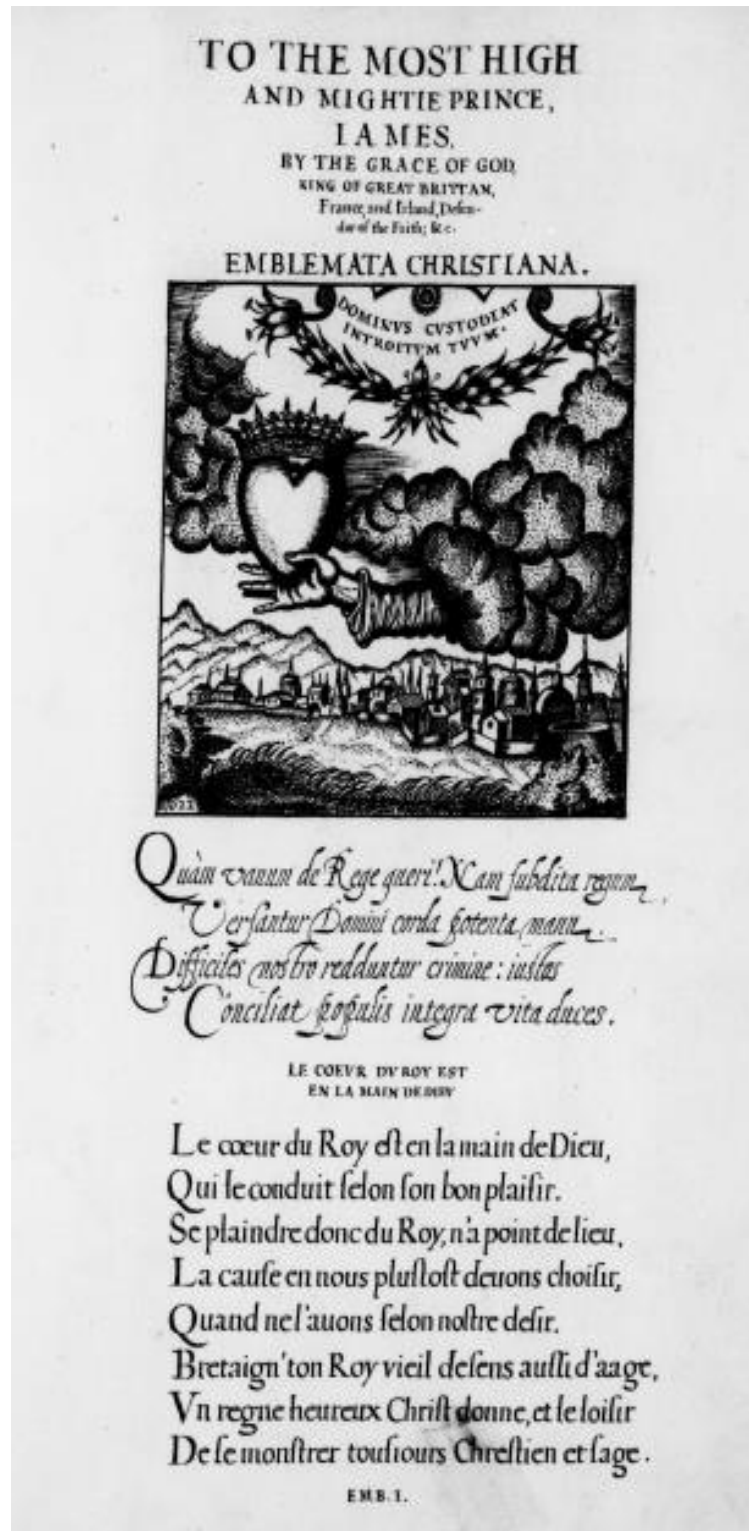 TO THE MOST HIGH
AND MIGHTIE PRINCE,
IAMES.
BY THE GRACE OF GOD,
KING OF GREAT BRITTAN,
France, and Irland, Defen-
dor of the Faith; &c.
EMBLEMATA CHRISTIANA.
DOMINVS CVSTODIAT
INTROITVM TVVM.
Quàm vanum de Rege queri! Nam subdita regum
Versantur Domini corda potenta manu.
Difficiles nostro redduntur crimine: iustos
Conciliat populis integra vita duces.
LE COEVR DV ROY EST
EN LA MAIN DE DIEV
Le cœur du Roy est en la main de Dieu,
Qui le conduit selon son bon plaisir.
Se plaindre donc du Roy, n'a point de lieu,
La cause en nous plustost deuons choisir,
Quand ne l'auons selon nostre desir.
Bretaign' ton Roy vieil de sens aussi d'aage,
Vn regne heureux Christ donne, et le loisir
De se monstrer tousiours Chrestien et sage.
EMB. I.